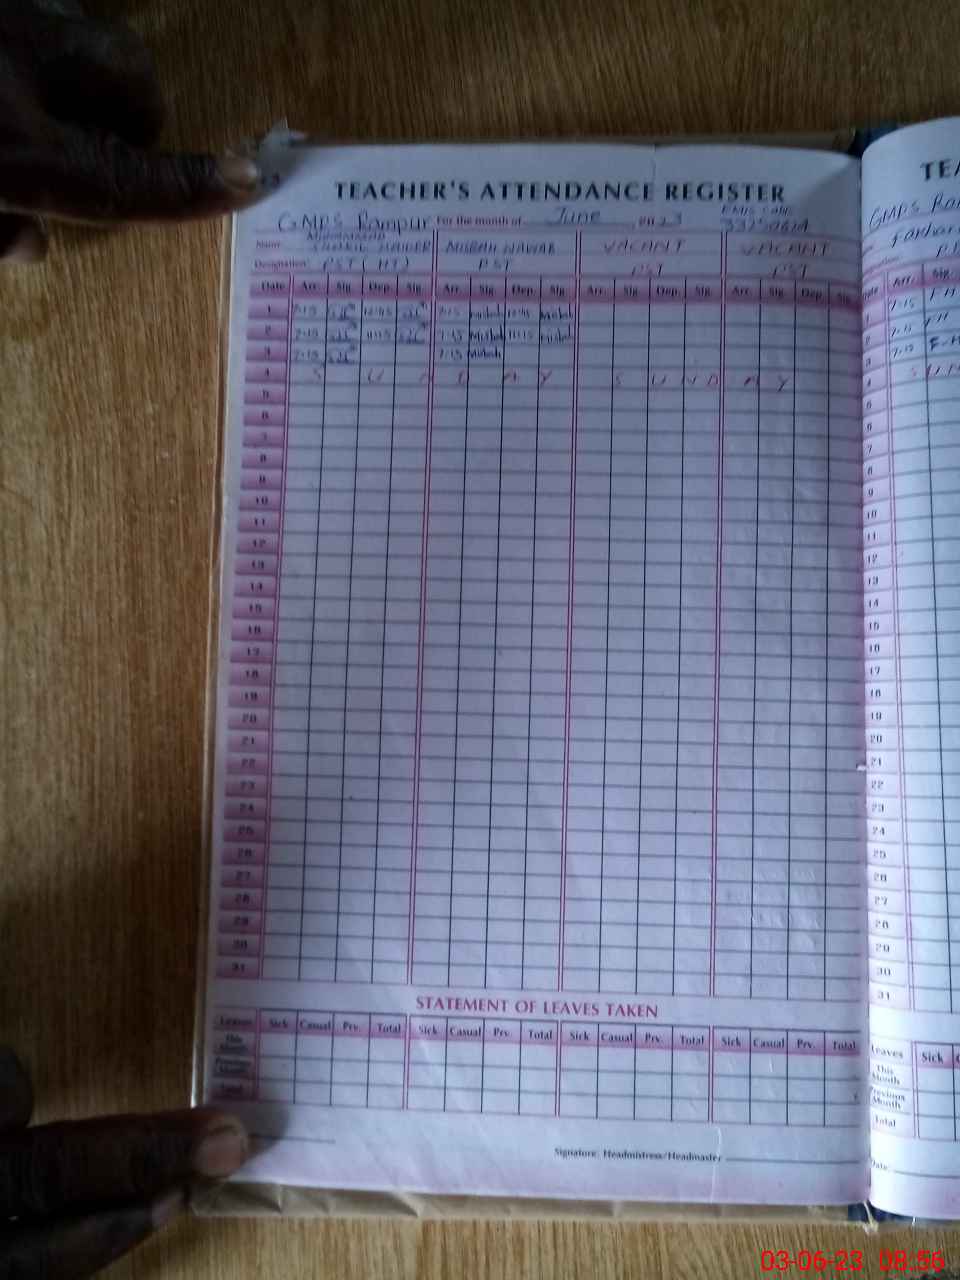 TEACHER'S ATTENDANCE REGISTER
GMPS Rampur For the month of June 2023 EMIS code
Name MUHAMMAD HAIDER MISBAH NAWAB VACANT VACANT
Designation: PST (HT) PST PST PST
Date Arr. Sig. Dep. Sig. Arr. Sig. Dep. Sig. Arr. Sig. Dep. Sig. Arr. Sig. Dep. Sig.
1 7-15 12-45 7-15 Misbah 12-45 Misbah
2 7-15 11-15 7-15 Misbah 11-15 Misbah
3 7-15 7-15 Misbah
4 S U N D A Y S U N D A Y
5
6
7
8
9
10
11
12
13
14
15
16
17
18
19
20
21
22
23
24
25
26
27
28
29
30
31
STATEMENT OF LEAVES TAKEN
Leaves Sick Casual Prv. Total Sick Casual Prv. Total Sick Casual Prv. Total Sick Casual Prv. Total
This Month
Previous Month
Total
Signature: Headmistress/Headmaster
TEA
GMPS Ra
PS
Arr. Sig.
1 7-15 FH
2 7-15 FH
3 7-15 F-H
4 S U N
5
6
7
8
9
10
11
12
13
14
15
16
17
18
19
20
21
22
23
24
25
26
27
28
29
30
31
Leaves Sick
This Month
Previous Month
Total
Date:
03-06-23 08:56